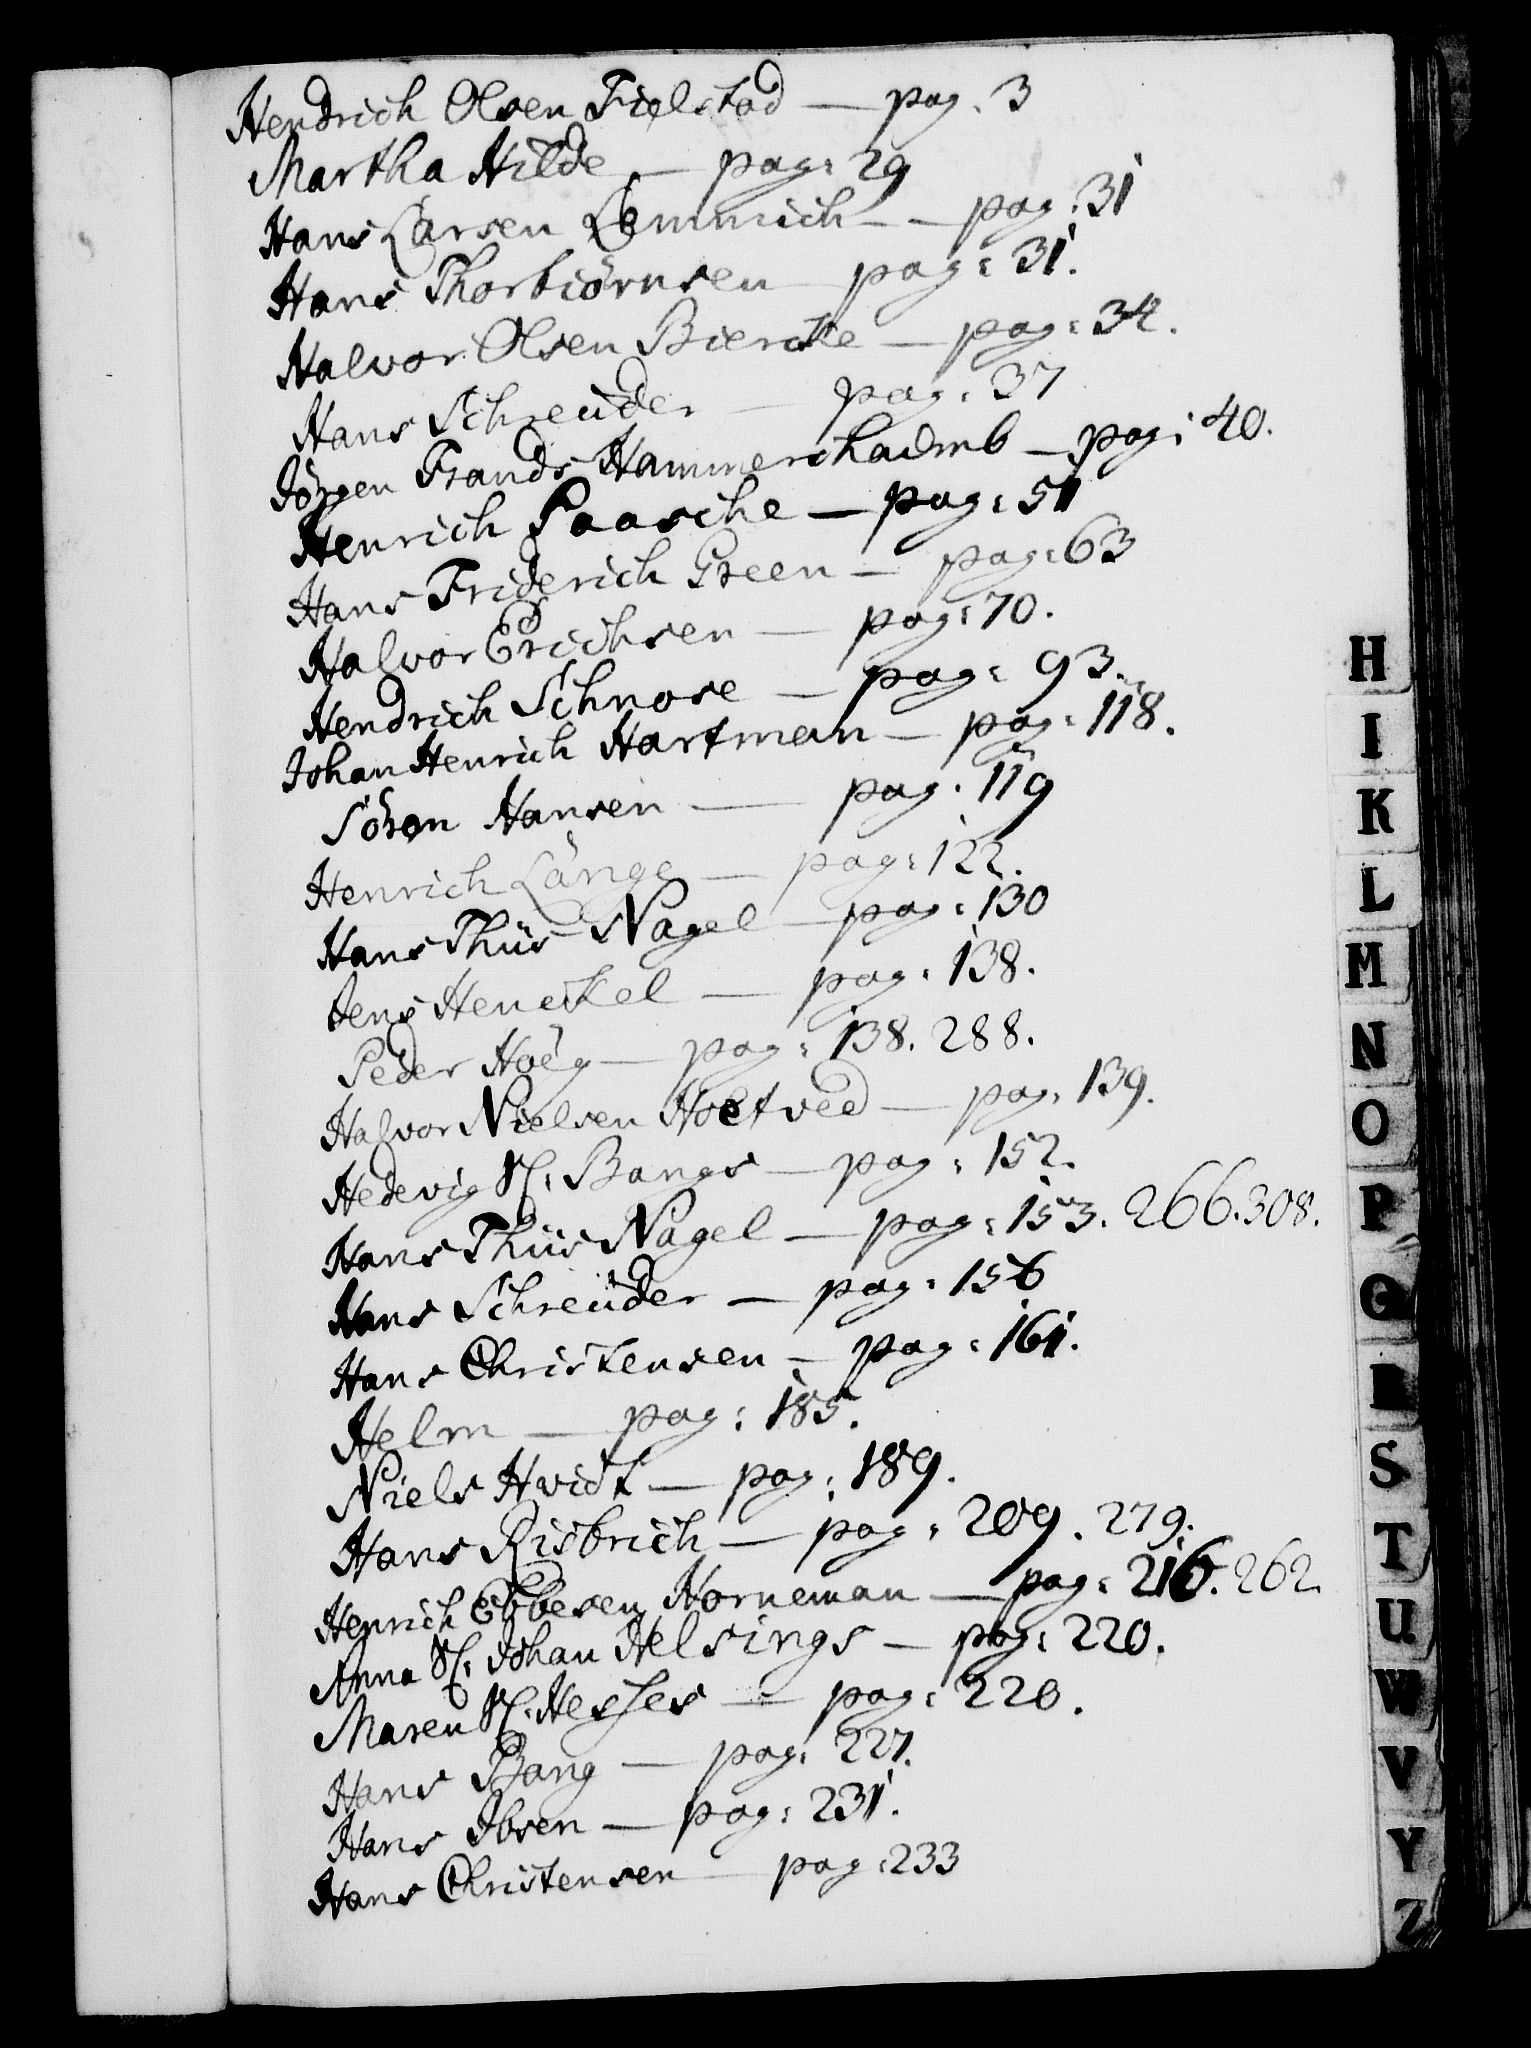 Hendrich Olsen Fielstad — pag. 3
Martha Hilde — pag: 29
Hans Larsen Lemmich — pag: 31
Hans Thorbiörnsen pag: 31.
Halvor Olsen Biercke — pag: 34.
Hans Schreüder — pag: 37
Jörgen Frands Hammerschaümb — pag: 40.
Henrich Paasche — pag: 51
Hans Friderich Green — pag: 63
Halvor Erichsen — pag: 70.
Hendrich Schnose — pag: 93.
Johan Henrich Hartman — pag: 118.
Sören Hansen — pag. 119
Henrich Lange — pag: 122.
Hans Thiis Nagel — pag: 130
Jens Henckel — pag: 138.
Peder Høeg — pag: 138. 288.
Halvor Nielsen Holtved — pag: 139.
Hedevig Sl: Bangs — pag: 152.
Hans Thiis Nagel — pag: 153. 266. 308.
Hans Schreüder — pag: 156
Hans Christensen — pag: 161.
Helm — pag: 185.
Niels Hvidt — pag: 189.
Hans Risbrich — pag: 209. 279.
Henrich Ebbesen Horneman — pag: 216. 262.
Anna Sl: Johan Helsings — pag: 220.
Maren Sl: Hesses — pag: 220.
Hans Bang — pag: 227.
Hans Ibsen — pag: 231.
Hans Christensen pag: 233
H
I
K
L
M
N
O
P
Q
R
S
T
U
W
V
Y
Z